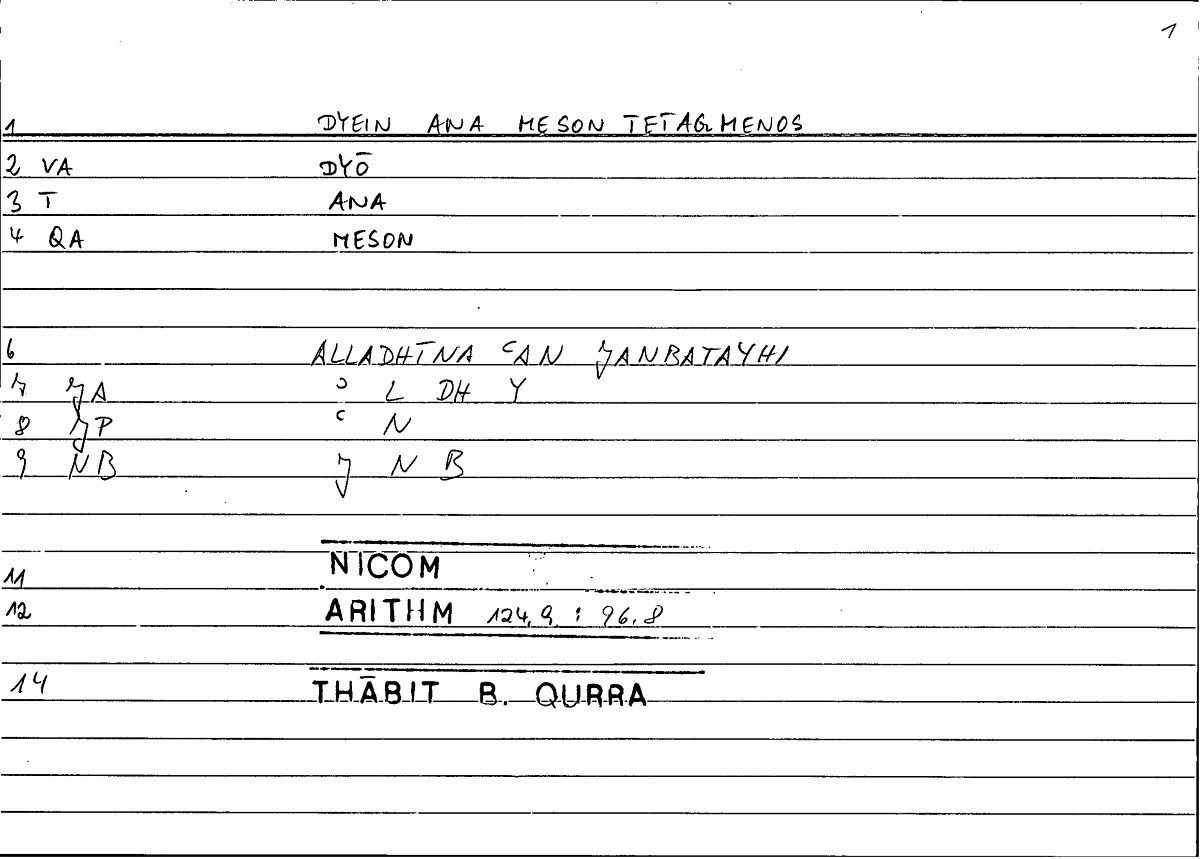 1
1 DYEIN ANA MESON TETAGMENOS
2 VA DYŌ
3 T ANA
4 QA MESON
6 ALLADHĪNA ʿAN JANBATAYHI
7 JA ʾ L DH Y
8 JP ʿ N
9 NB J N B
11 NICOM
12 ARITHM 124,9 : 96,8
14 THĀBIT B. QURRA